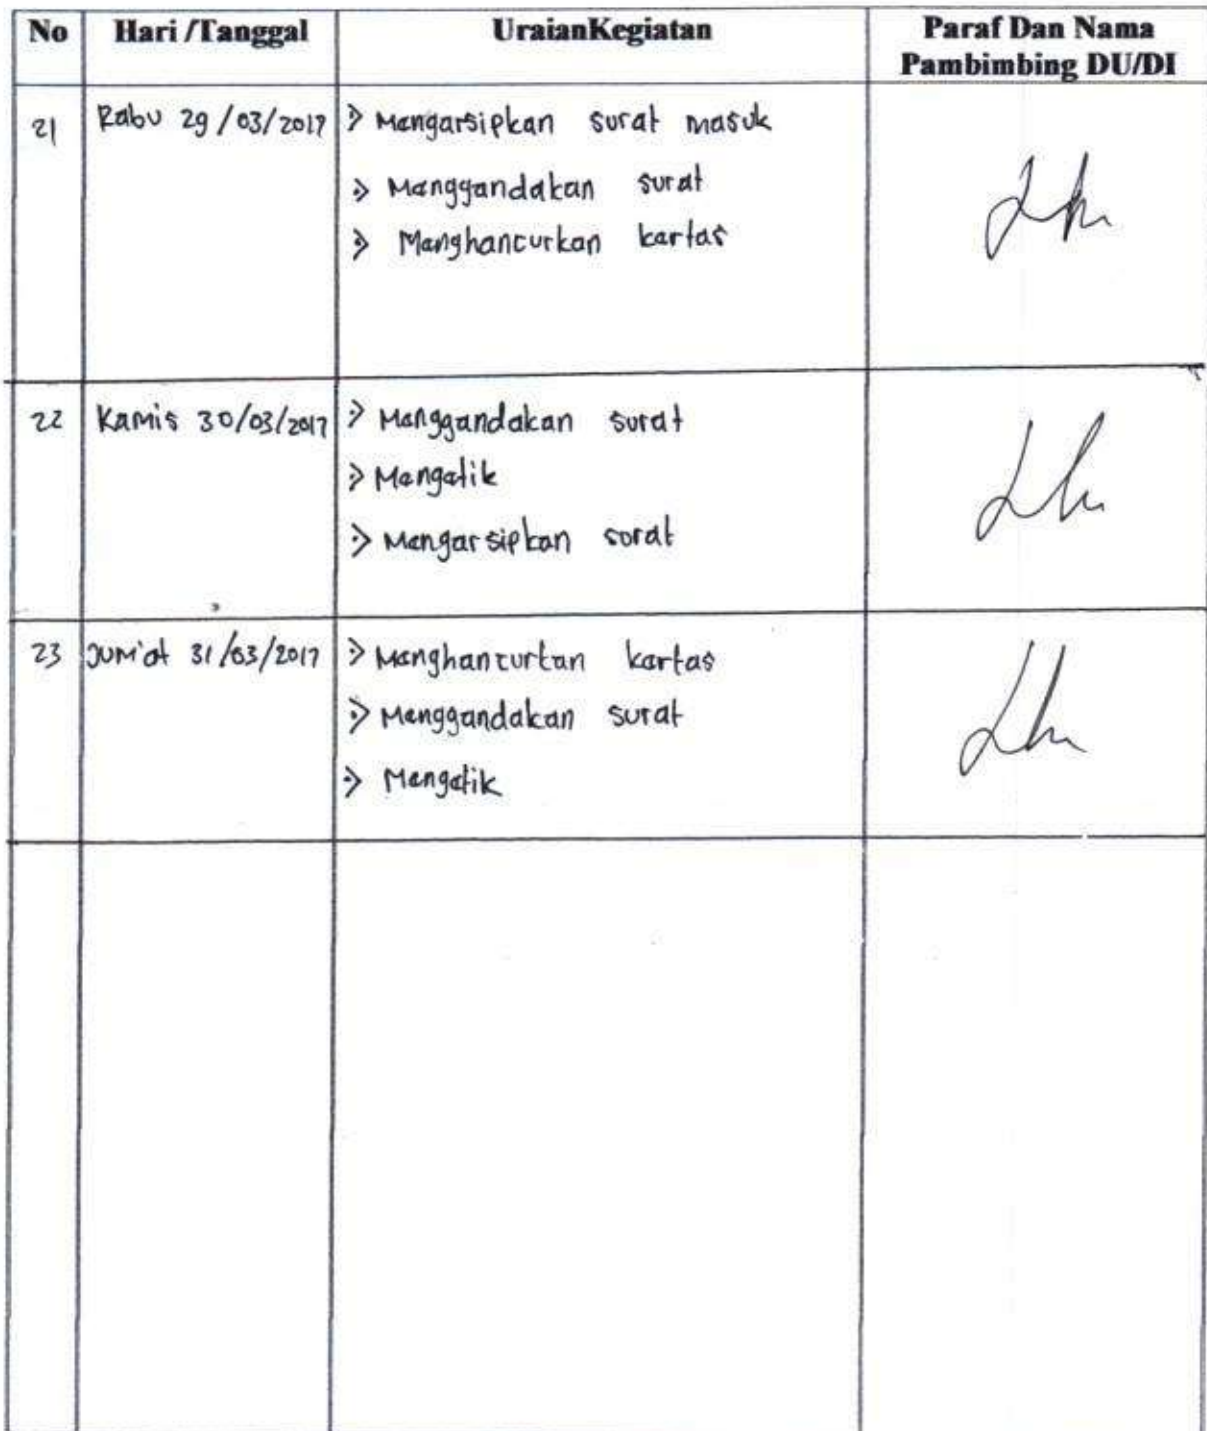 No Hari /Tanggal UraianKegiatan Paraf Dan Nama
Pambimbing DU/DI
21 Rabu 29/03/2017 > Mengarsipkan surat masuk
> Menggandakan surat
> Menghancurkan kertas
22 Kamis 30/03/2017 > Menggandakan surat
> Mengetik
> Mengarsipkan surat
23 Jum'at 31/03/2017 > Menghancurkan kertas
> Menggandakan surat
> Mengetik